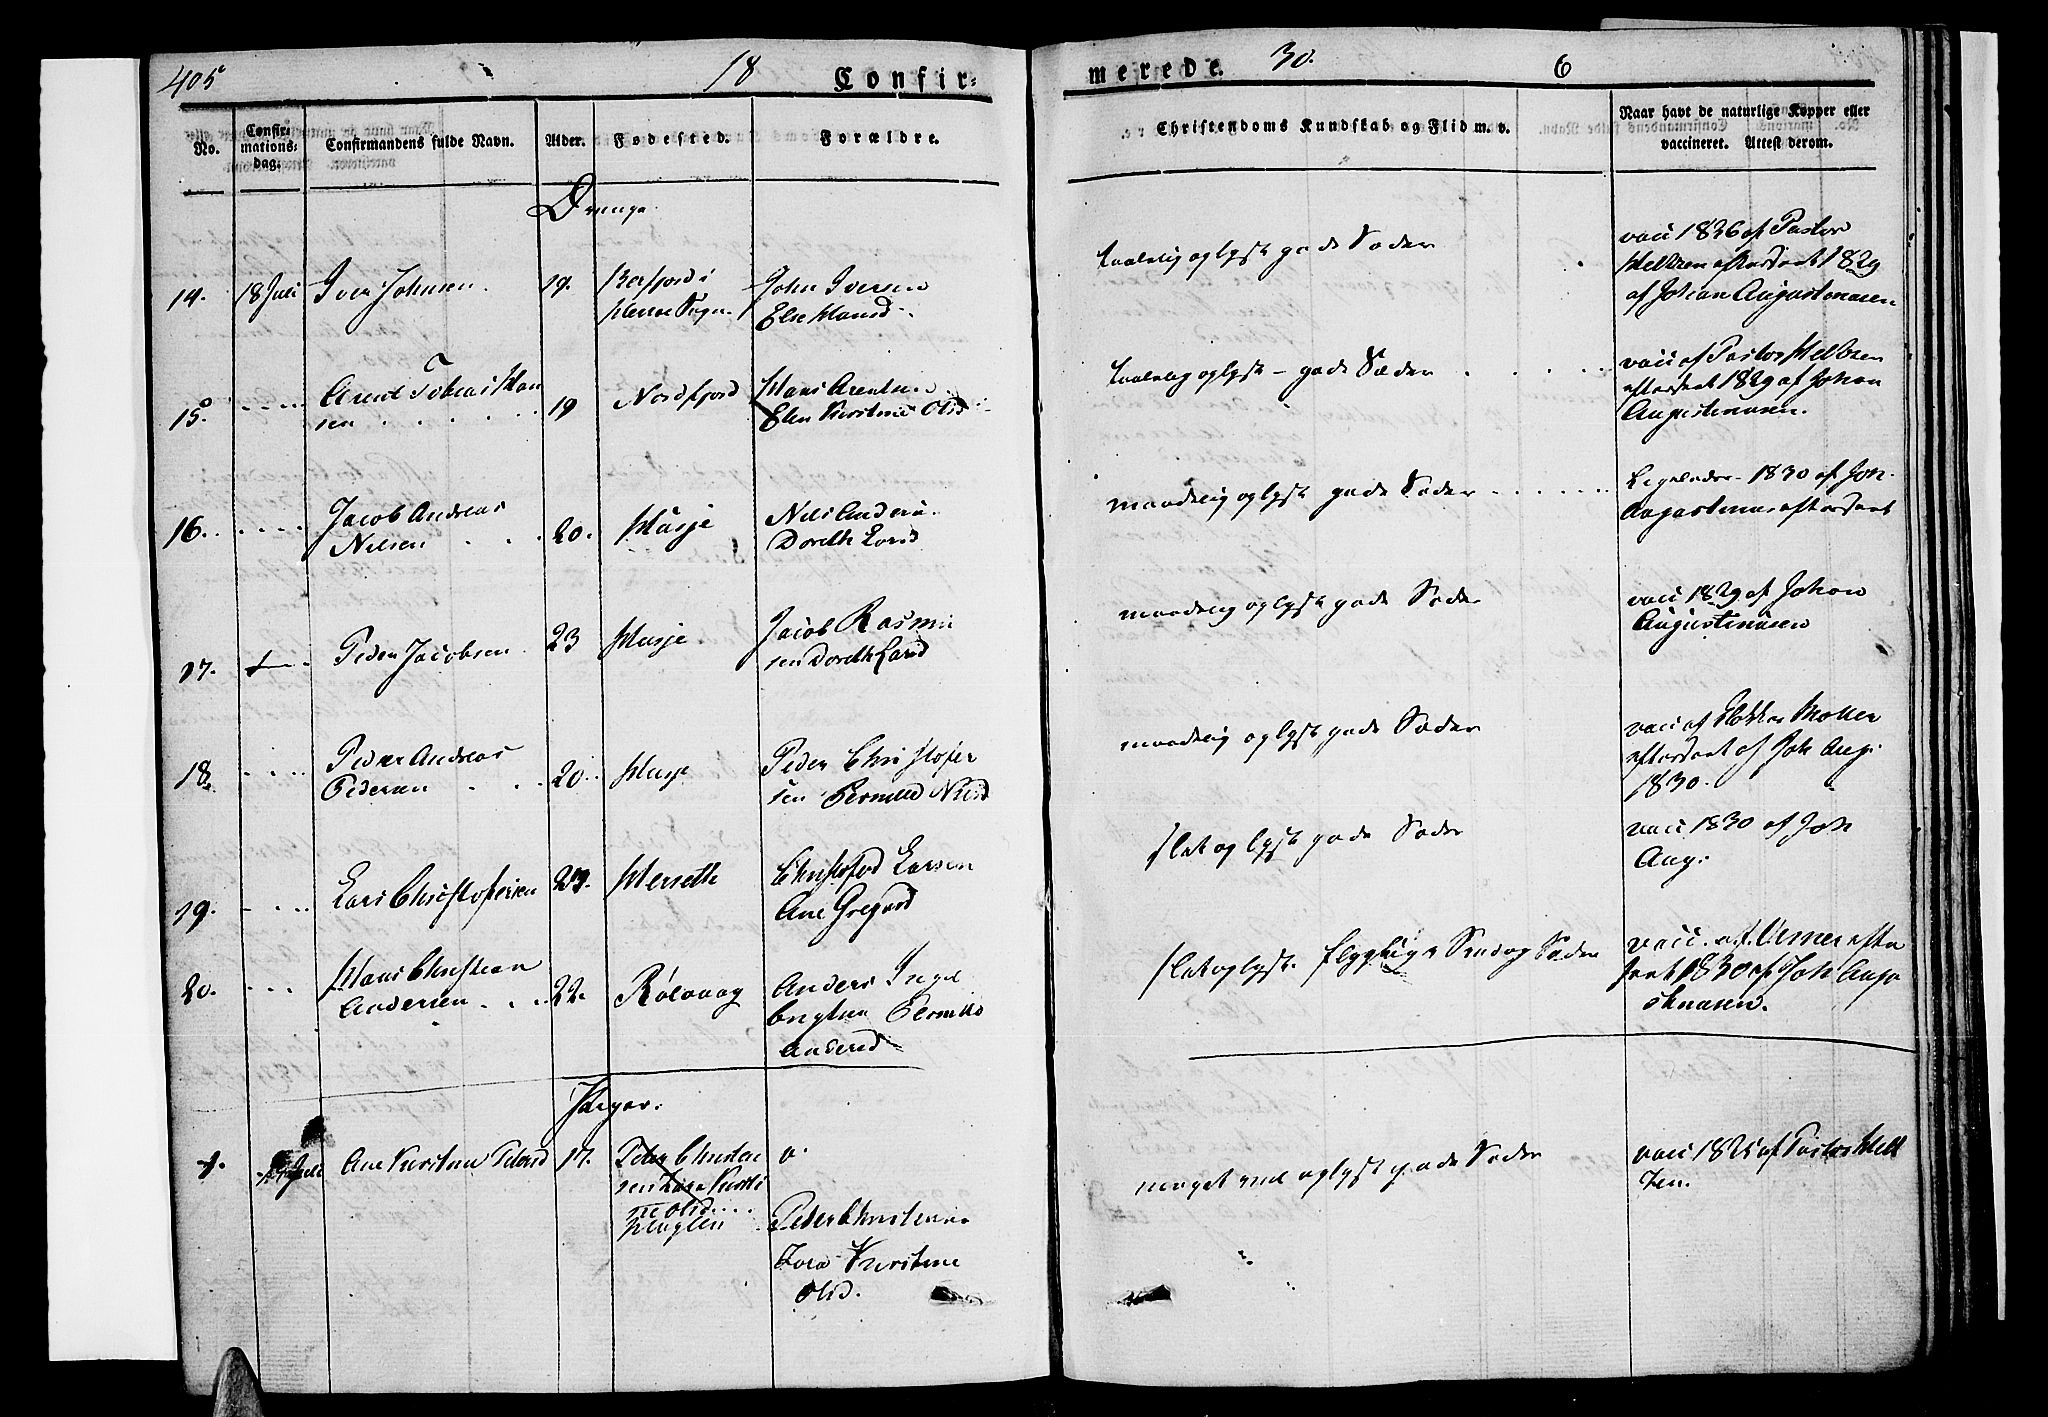 405
18
Confir-
merede.
30.
6
No.
Confir-
mations-
dag.
Confirmandens fulde Navn.
Alder.
Fødested.
Forældre.
Christendoms Kundskab og Flid m. v.
Naar havt de naturlige Kopper eller
vaccineret. Attest derom.
Drenge
14. 18 Juli Iver Johnsen. 19.
John Iversen
Else Hansd.
taalelig oplyst gode Sæder
vacc 1826 af Pastor
1829
af Johan Augustinusen
15. Arent Tobias Han
sen 19 Nordfjord
Hans Arentsen
Elen Kirstine Olsd
taalelig oplyst - gode Sæder
vacc af Pastor Heltzen
efterseet 1829 af Johan
Augustinusen.
16. Jacob Andreas
Nilsen 20. Husje
Nils Anders
Dorethe Larsd
maadelig oplyst gode Sæder
1830 af Joh.
Augustinus efterseet
17. Peder Jacobsen 23 Husje
Jacob Rasmu
sen Dorethe Larsd
maadelig oplyst gode Sæder
vacc 1829 af Johan
Augustinusen
18. Peder Andreas
Pedersen 20. Husje
Peder Christofer
sen Pernille Nilsd
maadelig oplyst gode Sæder
vacc af Møller
efterseet af Joh Aug.
1830.
19. Lars Christofersen
Christofod Larsen
Ane Gregersd
slet oplyst gode Sæder
vacc 1830 af Joh
Aug.
20. Hans Christian
Andersen 22. Rølovaag
Anders Ingel
brigtsen Pernille
Andersd
slet oplyst. Sæder
vacc. af efter
seet 1830 af Joh Augu
stinusen.
Piger.
1. Juli Ane Kirstine Pedersd 17.
Peder Christen
sen Lara Kirsti
ne Olsd
Peder Christensen
Kirstine
Olsd.
meget vel oplyst gode Sæder
vacc 1825 af Pastor Helt
zen.